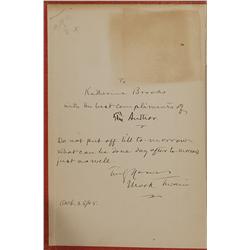 To
Katharine Brooks
with the best compliments of
The Author.
Do not put off till to-morrow
what can be done day after to-morrow
just as well
Truly Yours
Mark Twain
Oct. 3.